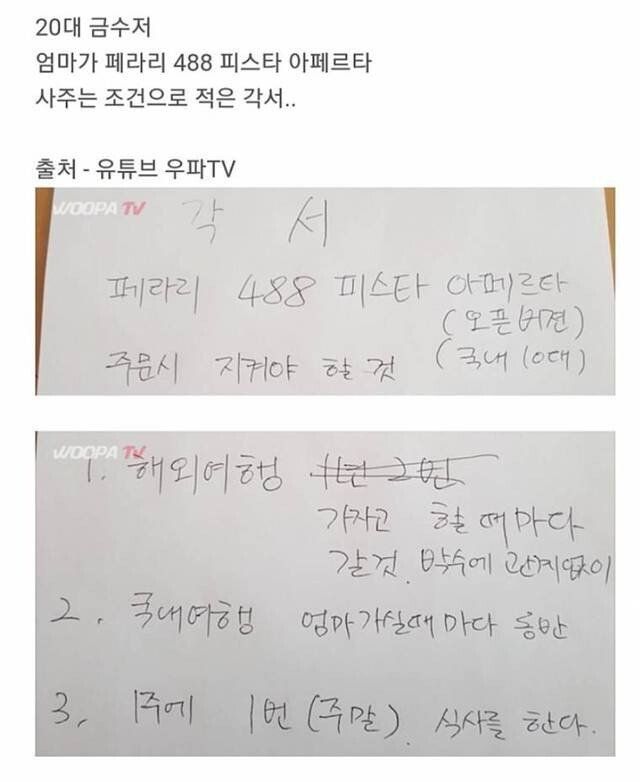 20대 금수저
엄마가 페라리 488 피스타 아페르타
사주는 조건으로 적은 각서..
출처 - 유튜브 우파TV
WOOPA TV
각 서
페라리 488 피스타 아페르타
(오픈버젼)
주문시 지켜야 할 것 (국내 10대)
WOOPA TV
1. 해외여행
가자고 할때마다
갈것. 박수에 관계없이
2. 국내여행 엄마가실때마다 동반
3, 1주에 1번 (주말). 식사를 한다.